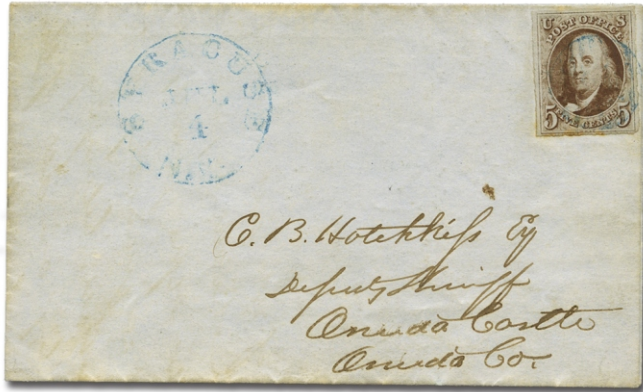 SYRACUSE
JUL
4
N.Y.
U S
POST OFFICE
5 FIVE CENTS 5
C. B. Hotchkiss Esq
Deputy Sheriff
Oneida Castle
Oneida Co.